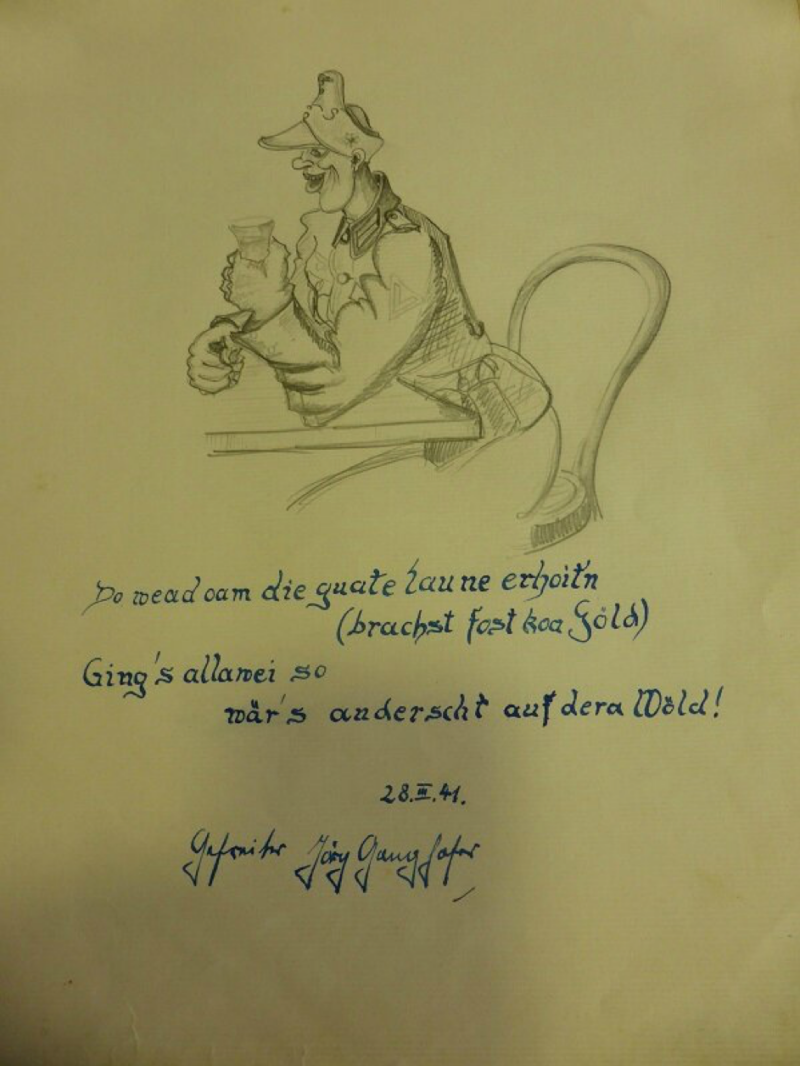 Do wead oam die guate Laune erhoit'n
(brachst fost koa Göld)
Ging's allawei so
wär's anderscht auf dera Wöld!
28.III.41.
Gefreiter Jörg Ganghofer